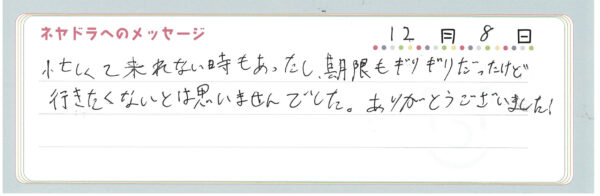 ネヤドラへのメッセージ
12月8日
忙しくて来れない時もあったし、期限もギリギリだったけど
行きたくないとは思いませんでした。ありがとうございました!